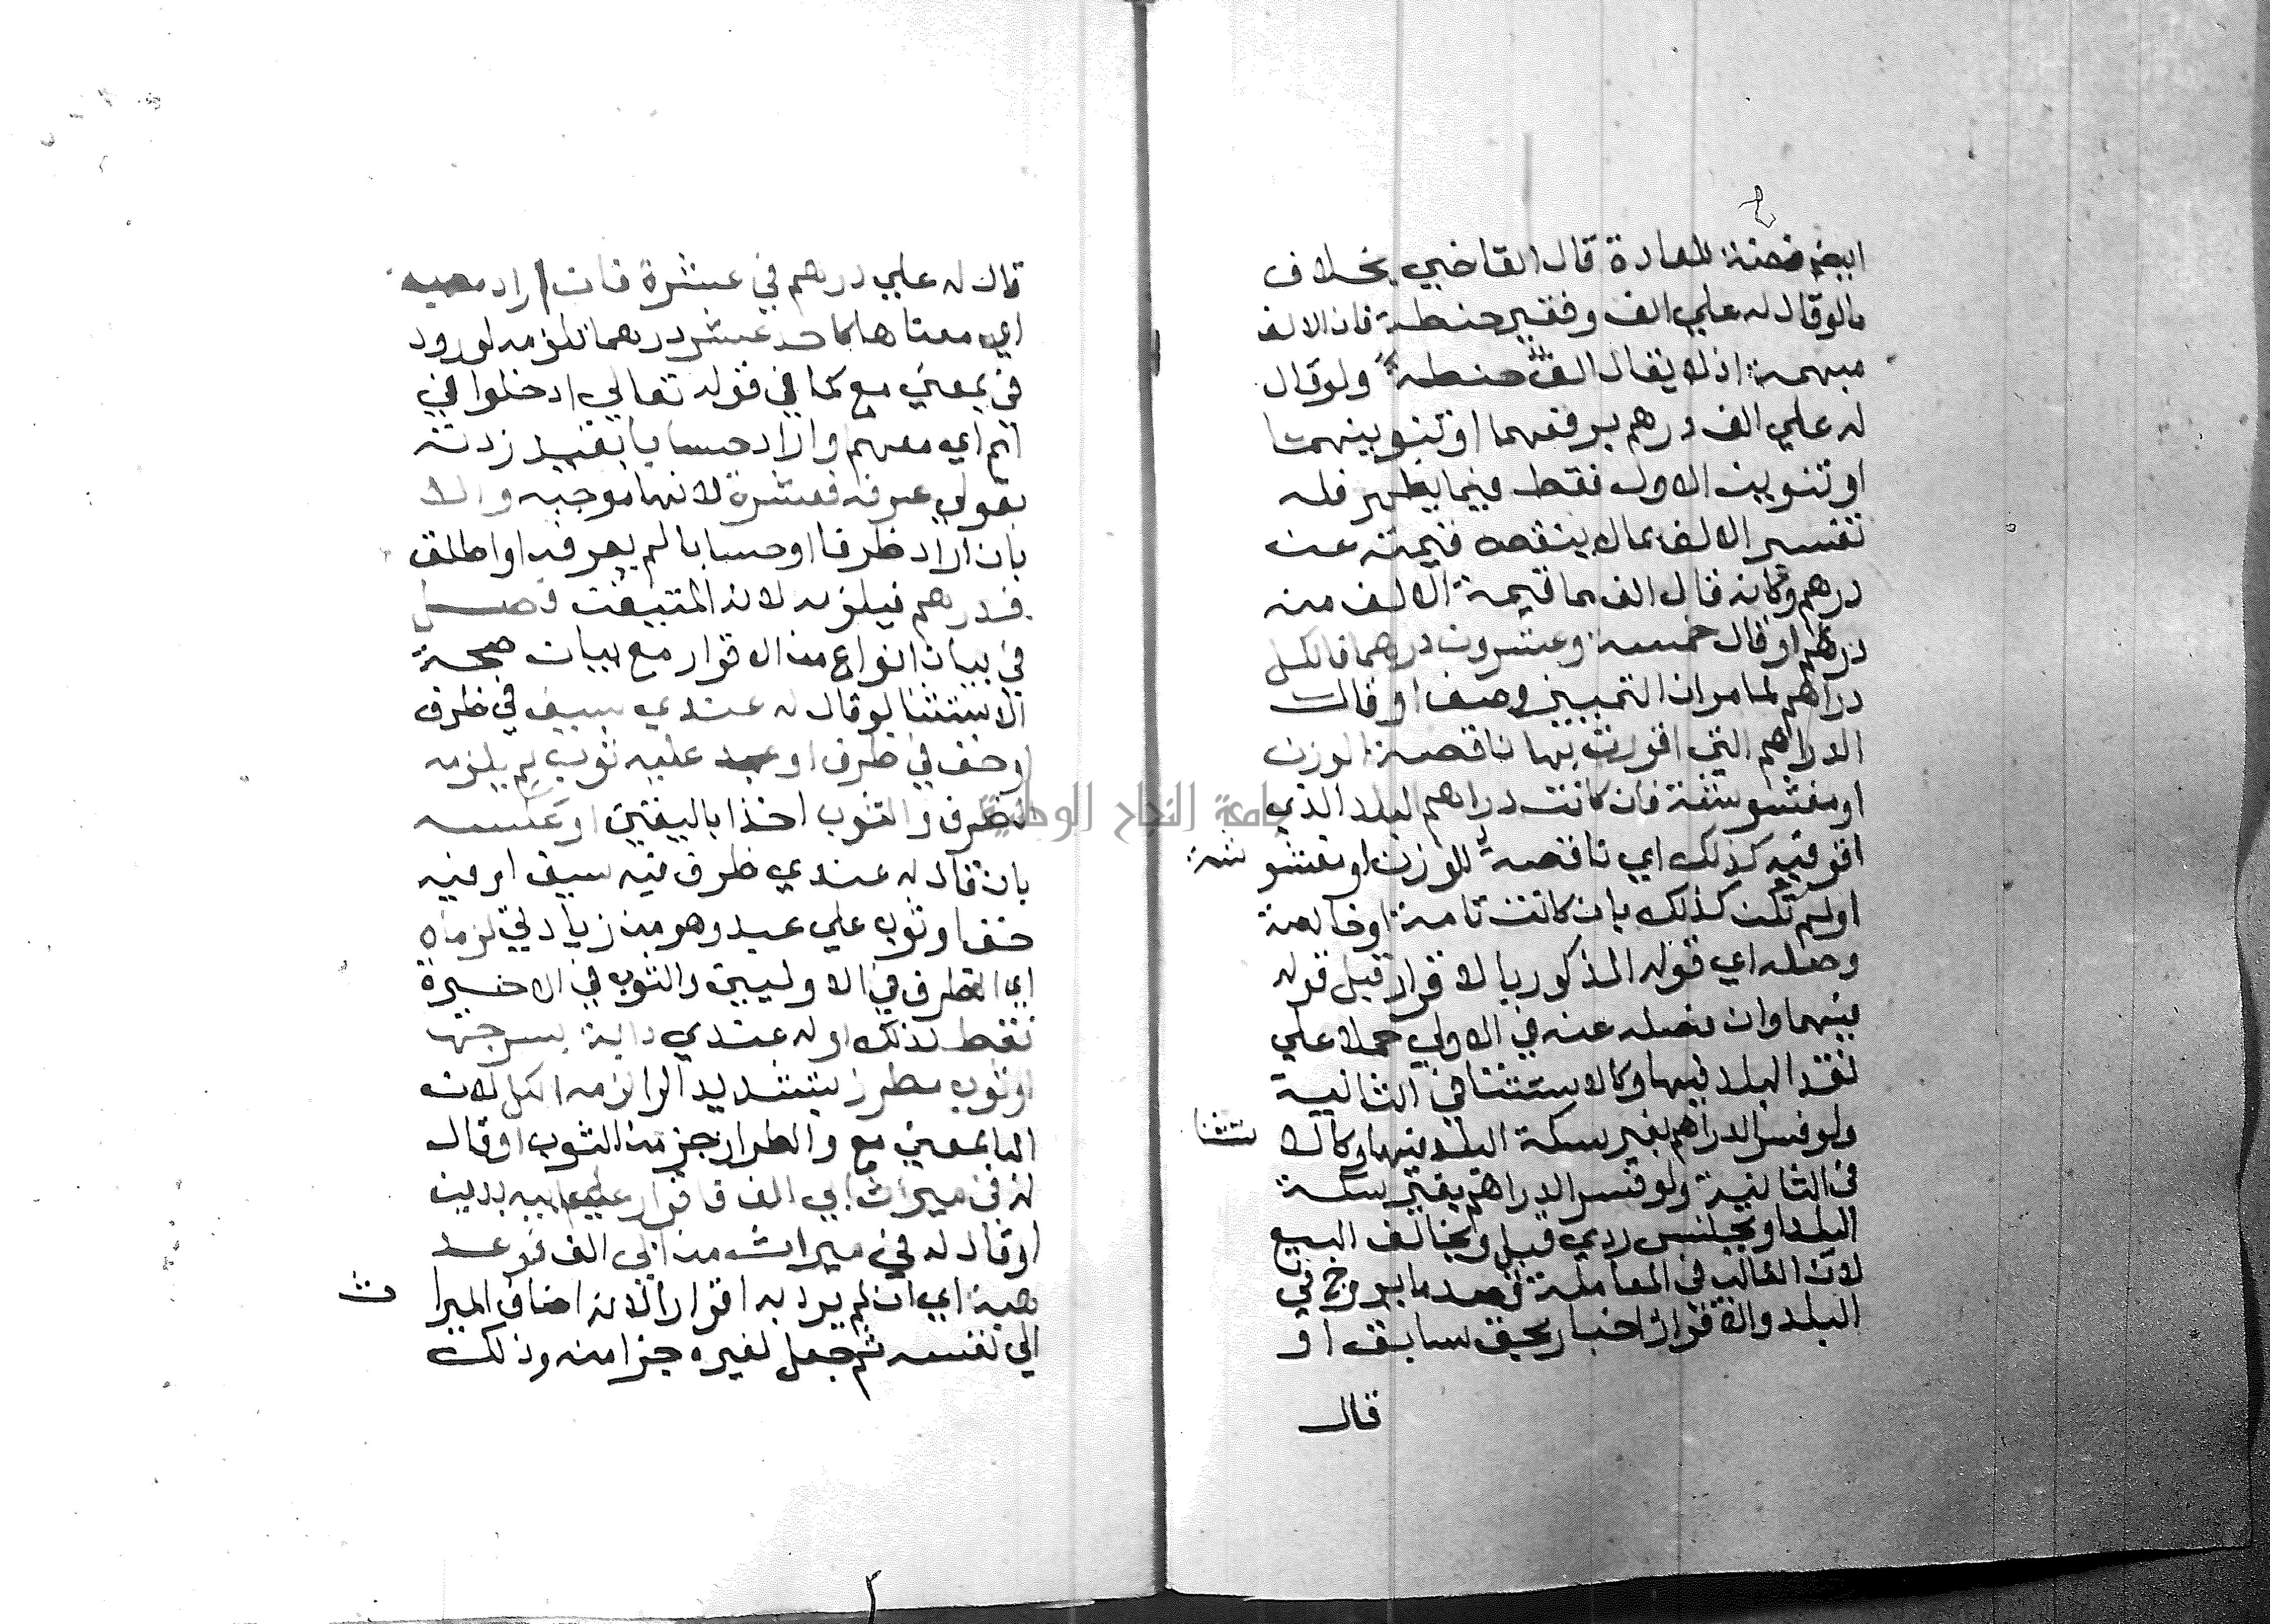 ايضا فضة للعادة قال القاضي بخلاف
مالو قال له علي الف وقفيز حنطة فان الالف
مبهمة اذ لا يقال الف حنطة ولو قال
له علي الف درهم برفعهما او تنوينهما
او تنوين الاول فقط فيما يظهر فله
تفسير الالف بمالا ينقص قيمته عن
درهم وكانه قال الف مما قيمة الالف منه
درهم او قال خمسة وعشرون درهما فالكل
دراهم لما مر ان التمييز وصف او قال
الدراهم التي اقررت بها ناقصة الوزن
او مغشوشة فان كانت دراهم البلد الذي
اقر فيه كذلك اي ناقصة الوزن او مغشوشة
او لم تكن كذلك بان كانت تامة او خالصة
وصله اي قوله المذكور بالاقرار قبل قوله
فيهما وان فصله عنه في الاولي حملا علي
نقد البلد فيها وكالاستثنا في الثانية
ولو فسر الدراهم بغير سكة البلد فيها وكالاستثنا
في الثانية ولو فسر الدراهم بغير سكة
البلد او بجنس ردي قبل ويخالف البيع
لان الغالب في المعاملة قصد ما يروج في
البلد والاقرار اخبار بحق سابق او
قال
قال له علي درهم في عشرة فان اراد معيه
اي معناها فاحد عشر درهما تلزمه لورود
في بمعني مع كما في قوله تعالي ادخلوا في
امم اي معهم واراد حسابا بقيد زدته
بقولي عرفه فعشرة لانها موجبه والا
بان اراد ظرفا او حسابا لم يعرفه او اطلق
فدرهم فيلزمه لانه المتيقن فصل
في بيان انواع من الاقرار مع بيان صحة
الاستثنا لو قال له عندي سيف في ظرف
او خف في ظرف او عبد عليه ثوب لم يلزمه
الظرف والثوب اخذا باليقين او عكسه
بان قال له عندي ظرف فيه سيف او فيه
خف او ثوب علي عبد وهو من زيادتي لزماه
اي الظرف في الاوليين والثوب في الاخيرة
فقط لذلك او له عندي دابة بسرجها
او ثوب مطرز بتشديد الرا لزمه الكل لان
البا بمعني مع والطراز جز من الثوب او قال
له في ميراث ابي الف فاقرار علي ابيه بدين
او قال له في ميراثي من ابي الف فوعد
هبة اي ان لم يرد به اقرارا لانه اضاف الميراث
الي نفسه ثم جعل لغيره جزا منه وذلك
جامعة النجاح الوطنية